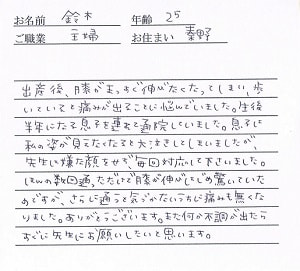 お名前 鈴木 年齢 25
ご職業 主婦 お住まい 秦野
出産後、膝がまっすぐ伸びなくなってしまい、歩
いていると痛みが出ることに悩んでいました。生後
半年になる息子を連れて通院していました。息子は
私の姿が見えなくなると大泣きしてしまいましたが、
先生は嫌な顔をせず、毎回対応して下さいました。
ほんの数回通っただけで膝が伸びはじめ驚いていた
のですが、さらに通って気づかないうちに痛みも無くな
りました。ありがとうございます。また何か不調が出たら
すぐに先生にお願いしたいと思います。